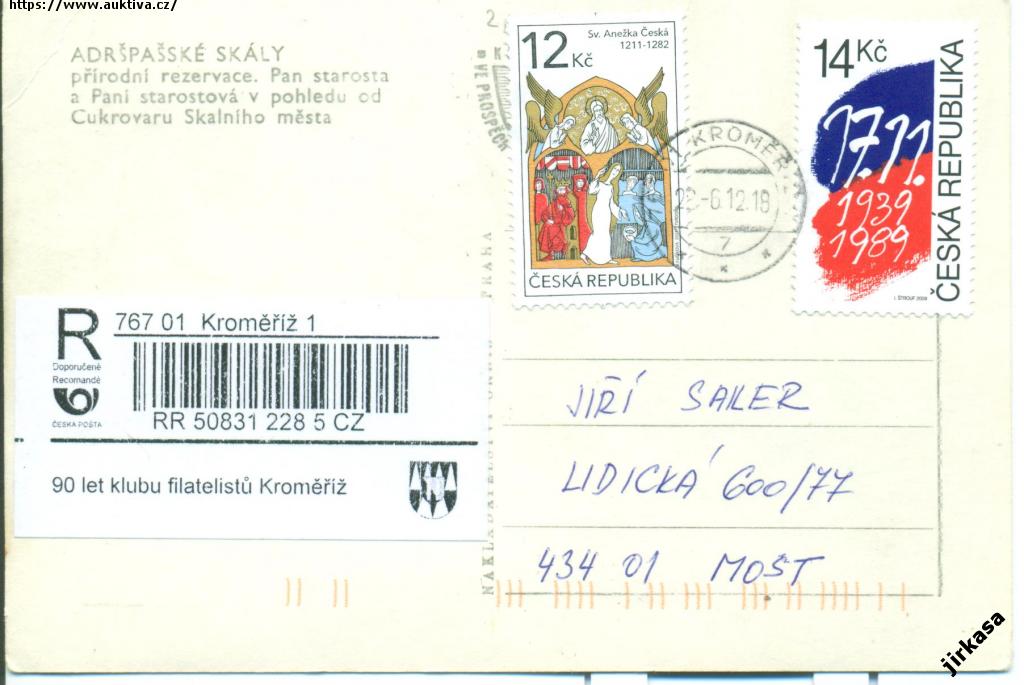 https://www.auktiva.cz/
ADRŠPAŠSKÉ SKÁLY
přírodní rezervace. Pan starosta
a Paní starostová v pohledu od
Cukrovaru Skalního města
VE PROSPĚCH
12 Kč
Sv. Anežka Česká
1211-1282
ČESKÁ REPUBLIKA
14 Kč
17.11.
1939
1989
ČESKÁ REPUBLIKA
I. ŠTROUF 2009
KROMĚŘ
22-6.12.18
7
R
Doporučeně
Recomandé
ČESKÁ POŠTA
767 01 Kroměříž 1
RR 50831 228 5 CZ
90 let klubu filatelistů Kroměříž
JIŘÍ SAILER
LIDICKÁ 600/77
434 01 MOST
jirkasa